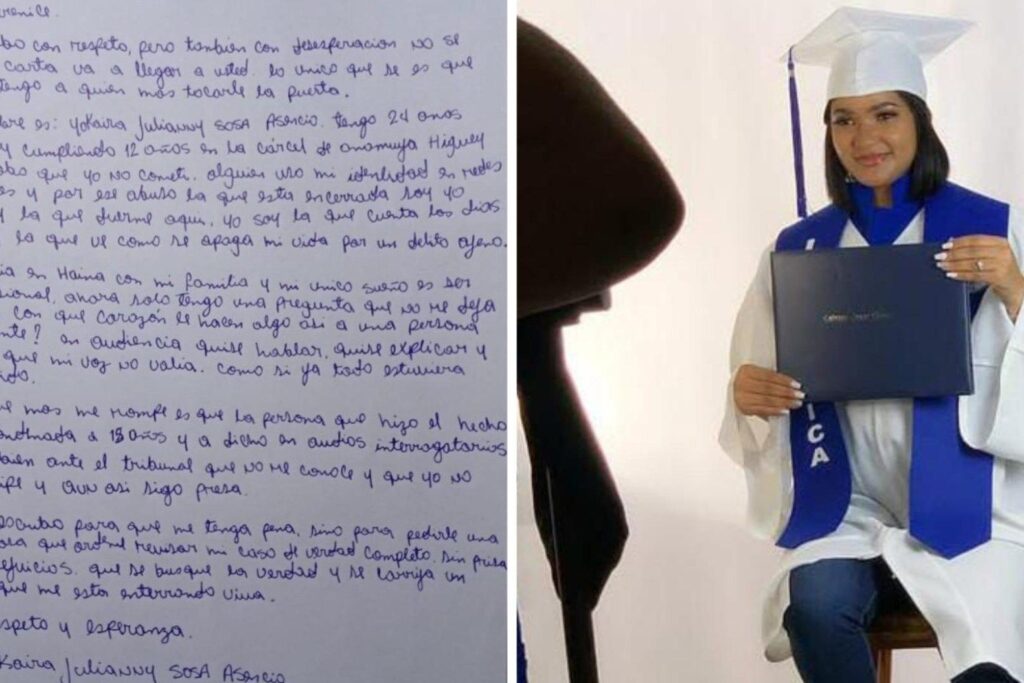 renice.
bo con respeto, pero tambien con desesperacion no se
carta va a llegar a usted. lo unico que se es que
tengo a quien mas tocarle la puerta.
bre es: Yokaira Julianny SOSA Asencio. tengo 24 anos
y cumpliendo 12 años en la cárcel de anamuya Higuey
obo que yo no cometi. alguien uso mi identidad en redes
es y por ese abuso la que esta encerrada soy yo
y la que duerme aqui, yo soy la que cuenta los dias
la que ve como se apaga mi vida por un delito ajeno.
ia en Haina con mi familia y mi unico sueño es ser
sional, ahora solo tengo una pregunta que no me deja
con que corazón le hacen algo asi a una persona
nte? en audiencia quise hablar, quise explicar y
que mi voz no valia. como si ya todo estuviera
ido.
ue mas me rompe es que la persona que hizo el hecho
ondenada a años y a dicho en audios interrogatorios
bien ante el tribunal que no me conoce y que yo no
ipe y aun asi sigo presa.
scribo para que me tenga pena, sino para pedirle una
osa que ordene revisar mi caso de verdad completo, sin prisa
ejuicios. que se busque la verdad y se corrija un
que me esta enterrando viva.
speto y esperanza.
Kaira Julianny SOSA Asencio
ICA